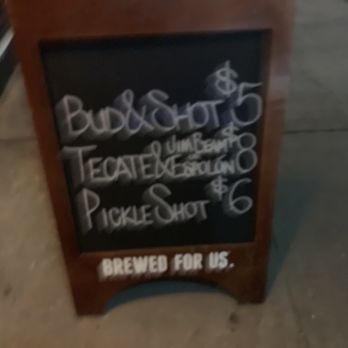 BUD & SHOT $5
JIM BEAM
TECATE & ESPOLÓN $8
PICKLE SHOT $6
BREWED FOR US.